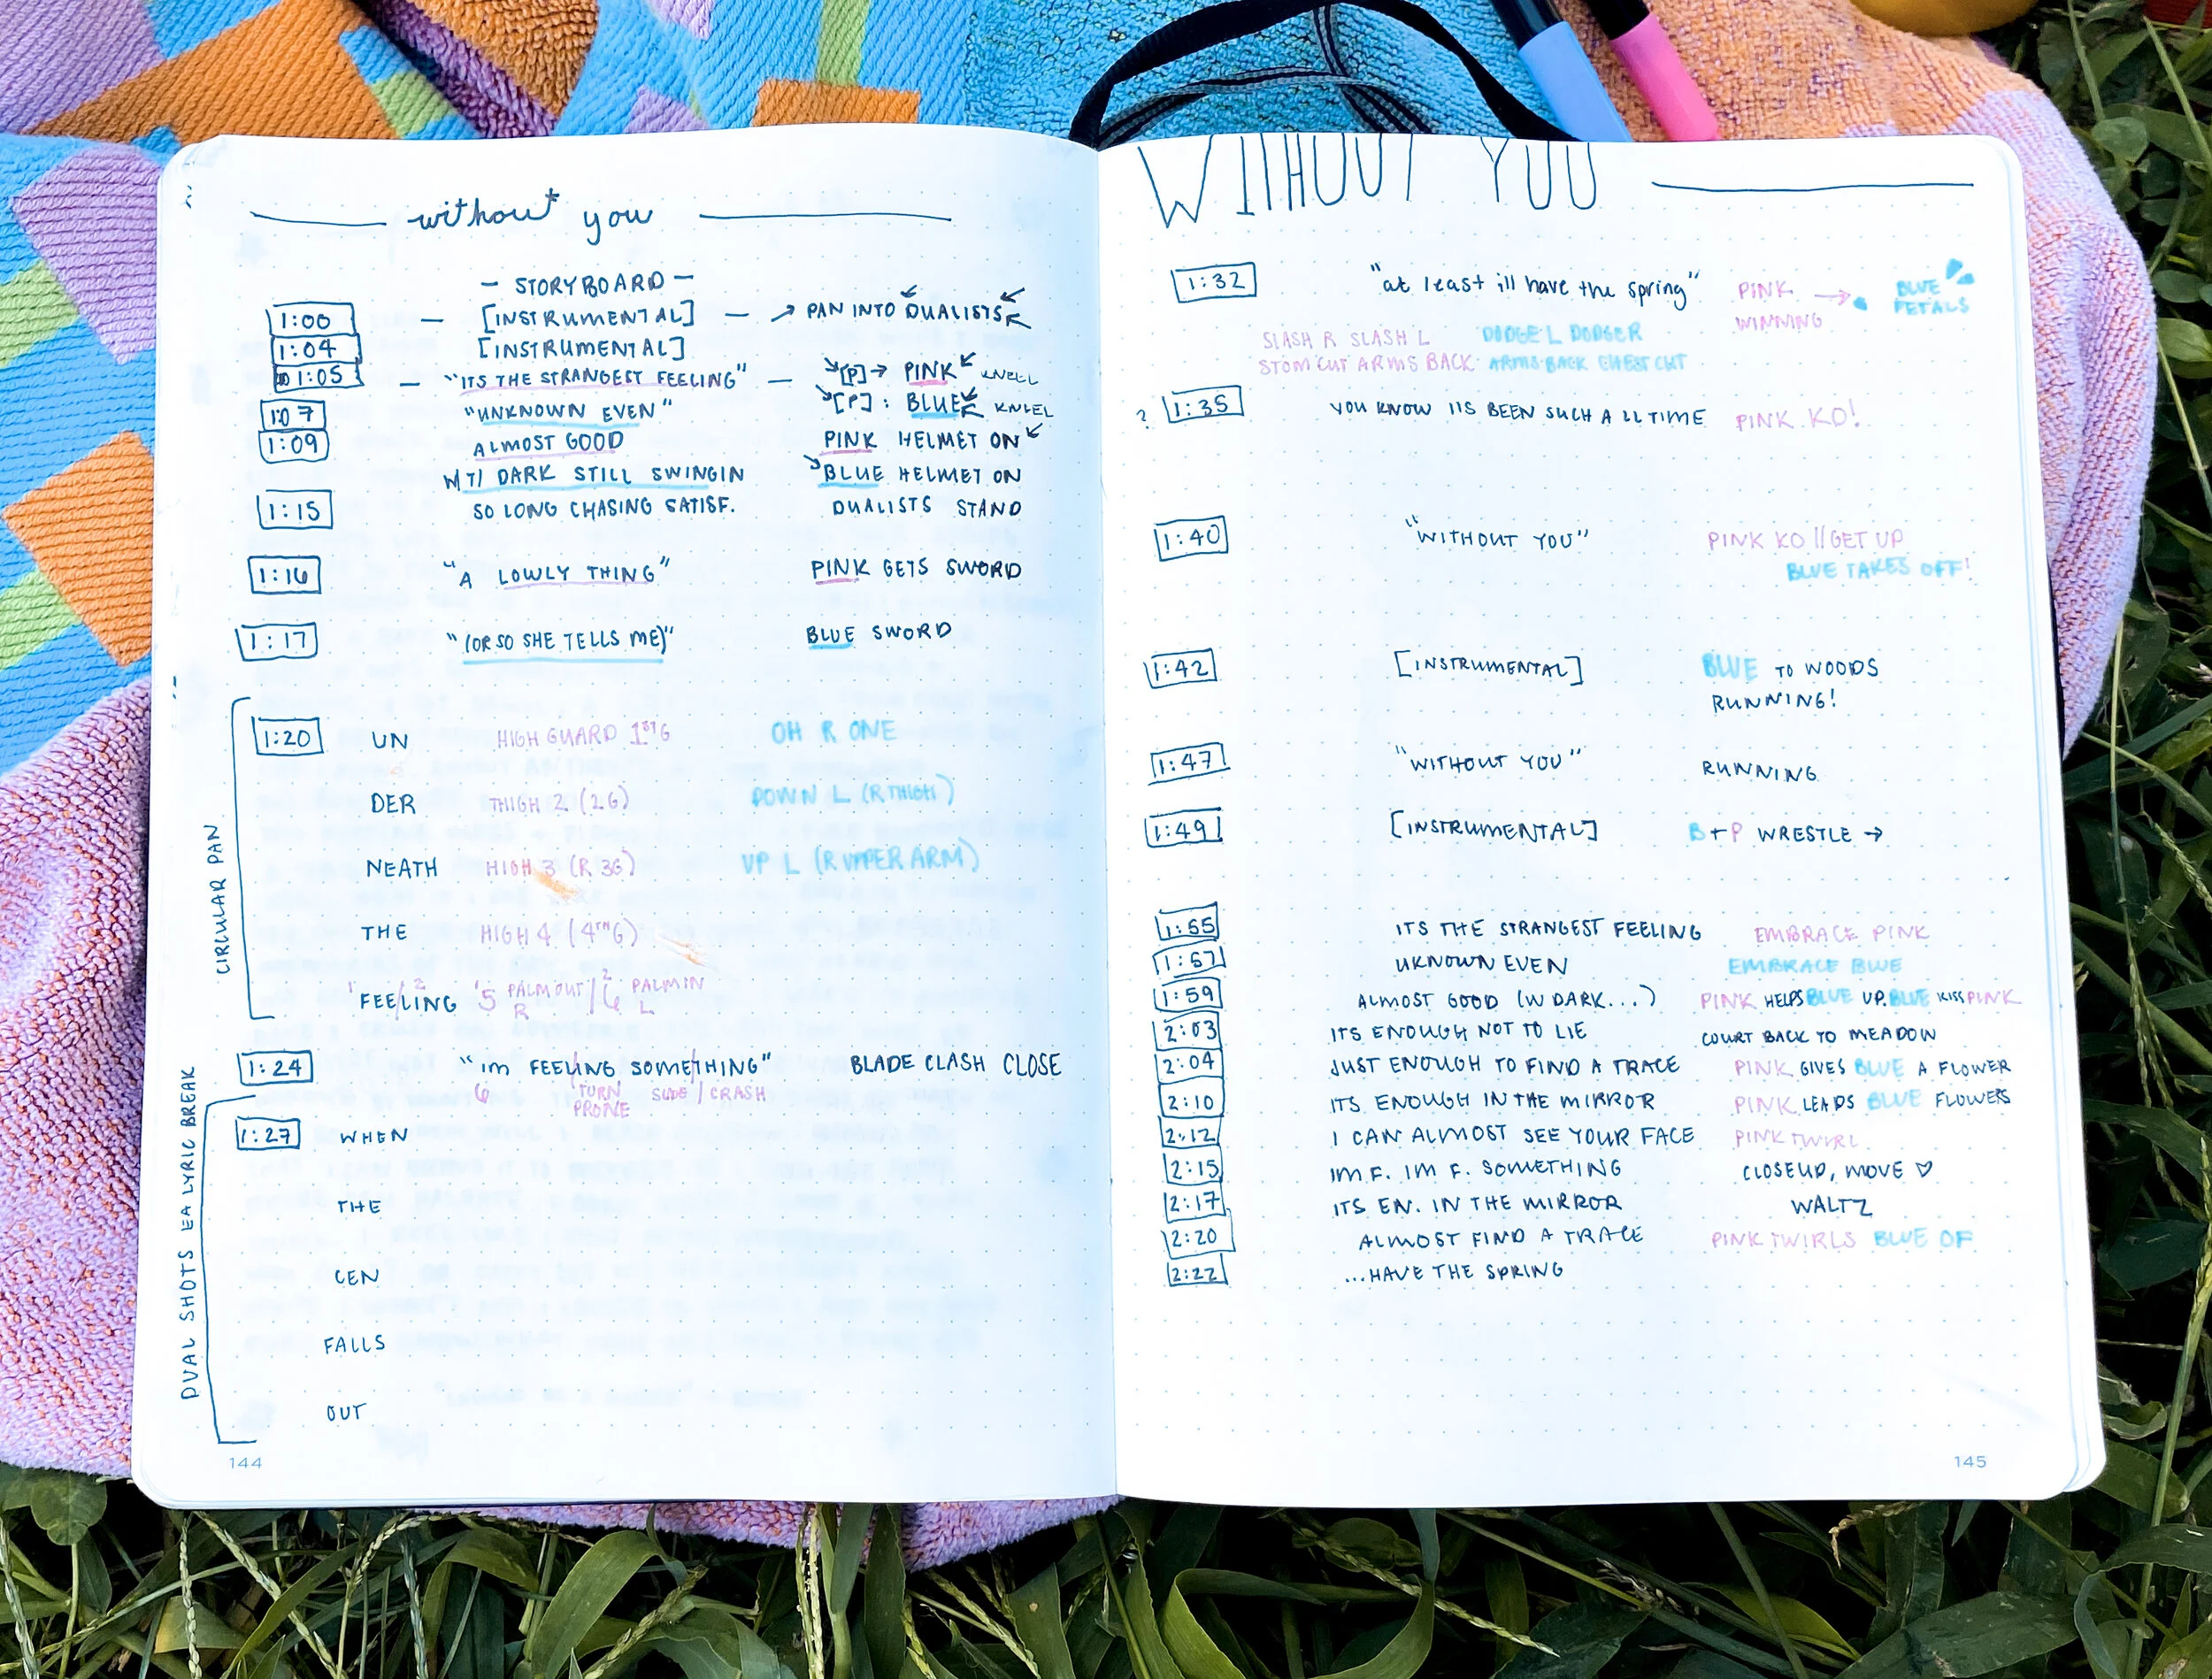 without you
- STORYBOARD -
1:00 — [INSTRUMENTAL] — → PAN INTO DUALISTS
1:04 [INSTRUMENTAL]
1:05 — "ITS THE STRANGEST FEELING" — [P] → PINK KNEEL
1:07 "UNKNOWN EVEN" [P] : BLUE KNEEL
1:09 ALMOST GOOD PINK HELMET ON
DARK STILL SWINGIN BLUE HELMET ON
1:15 SO LONG CHASING SATISF. DUALISTS STAND
1:16 "A LOWLY THING" PINK GETS SWORD
1:17 "(OR SO SHE TELLS ME)" BLUE SWORD
CIRCULAR PAN
1:20 UN HIGH GUARD 1st G OH R ONE
DER THIGH 2 (2G) DOWN L (R THIGH)
NEATH HIGH 3 (R 3G) UP L (R UPPER ARM)
THE HIGH 4 (4TH G)
1 FEE/2 LING 1 5 PALM OUT R / 2 6 PALM IN L
1:24 "im FEELING SOMETHING" BLADE CLASH CLOSE
6 TURN PRONE SLIDE / CRASH
DUAL SHOTS EA LYRIC BREAK
1:27 WHEN
THE
CEN
FALLS
OUT
144
WITHOUT YOU
1:32 "at least ill have the spring" PINK WINNING → BLUE PETALS
SLASH R SLASH L DODGE L DODGE R
STOM CUT ARMS BACK ARMS BACK CHEST CUT
? 1:35 YOU KNOW ITS BEEN SUCH A LL TIME PINK KO!
1:40 "WITHOUT YOU" PINK KO // GET UP
BLUE TAKES OFF!
1:42 [INSTRUMENTAL] BLUE TO WOODS
RUNNING!
1:47 "WITHOUT YOU" RUNNING
1:49 [INSTRUMENTAL] B + P WRESTLE →
1:55 ITS THE STRANGEST FEELING EMBRACE PINK
1:57 UKNOWN EVEN EMBRACE BLUE
1:59 ALMOST GOOD (W DARK...) PINK HELPS BLUE UP. BLUE KISS PINK
2:03 ITS ENOUGH NOT TO LIE COURT BACK TO MEADOW
2:04 JUST ENOUGH TO FIND A TRACE PINK GIVES BLUE A FLOWER
2:10 ITS ENOUGH IN THE MIRROR PINK LEADS BLUE FLOWERS
2:12 I CAN ALMOST SEE YOUR FACE PINK TWIRL
2:15 IM F. IM F. SOMETHING CLOSEUP, MOVE ♡
2:17 ITS EN. IN THE MIRROR WALTZ
2:20 ALMOST FIND A TRACE PINK TWIRLS BLUE OF
2:22 ...HAVE THE SPRING
145